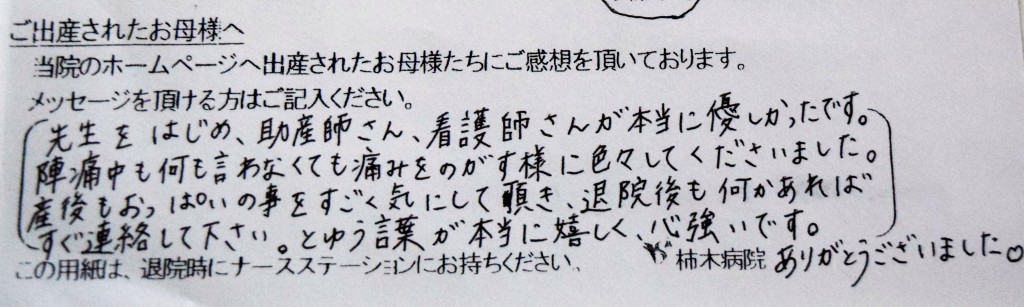 ご出産されたお母様へ
当院のホームページへ出産されたお母様たちにご感想を頂いております。
メッセージを頂ける方はご記入ください。
先生をはじめ、助産師さん、看護師さんが本当に優しかったです。
陣痛中も何も言わなくても痛みをのがす様に色々してくださいました。
産後もおっぱいの事をすごく気にして頂き、退院後も何かあれば
すぐ連絡して下さい。とゆう言葉が本当に嬉しく、心強いです。
ありがとうございました。
この用紙は、退院時にナースステーションにお持ちください。 柿木病院